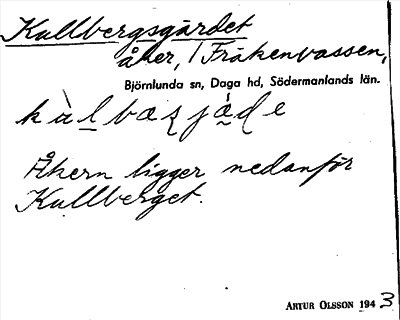 Kullbergsgärdet
åker, / Fräkenvassen,
Björnlunda sn, Daga hd, Södermanlands län.
Åkern ligger nedanför
Kullberget.
ARTUR OLSSON 1943